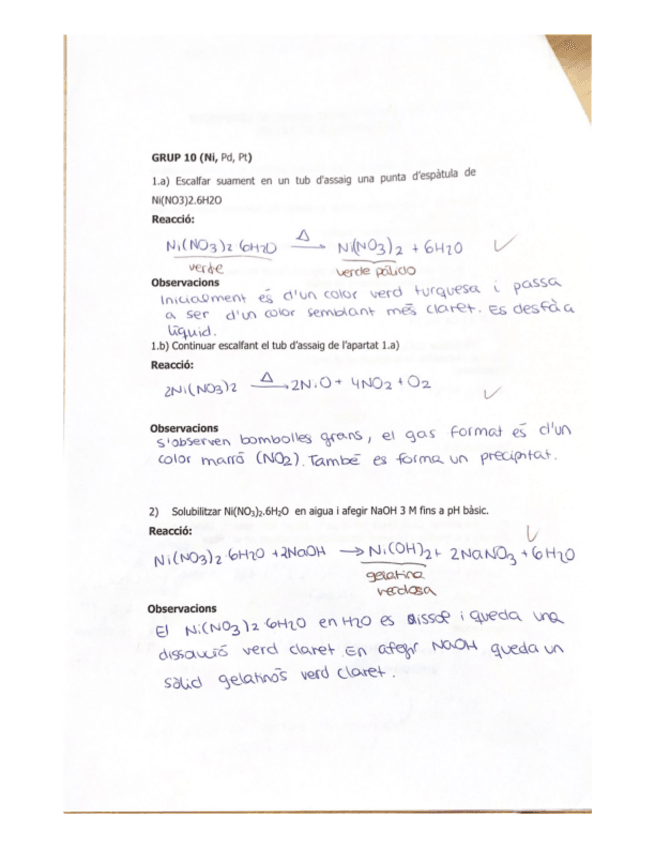 GRUP 10 (Ni, Pd, Pt)
1.a) Escalfar suament en un tub d'assaig una punta d'espàtula de
Ni(NO3)2.6H2O
Reacció:
Ni(NO3)2 6H2O —Δ→ Ni(NO3)2 + 6H2O ✓
verde verde pálido
Observacions
Inicialment és d'un color verd turquesa i passa
a ser d'un color semblant més claret. Es desfà a
líquid.
1.b) Continuar escalfant el tub d'assaig de l'apartat 1.a)
Reacció:
2Ni(NO3)2 —Δ→ 2NiO + 4NO2 + O2 ✓
Observacions
S'observen bombolles grans, el gas format és d'un
color marró (NO2). També es forma un precipitat.
2) Solubilitzar Ni(NO3)2.6H2O en aigua i afegir NaOH 3 M fins a pH bàsic.
Reacció: ✓
Ni(NO3)2 6H2O + 2NaOH → Ni(OH)2 + 2NaNO3 + 6H2O
gelatina
verdosa
Observacions
El Ni(NO3)2 6H2O en H2O es dissol i queda una
dissolució verd claret. En afegir NaOH queda un
sòlid gelatinós verd claret.